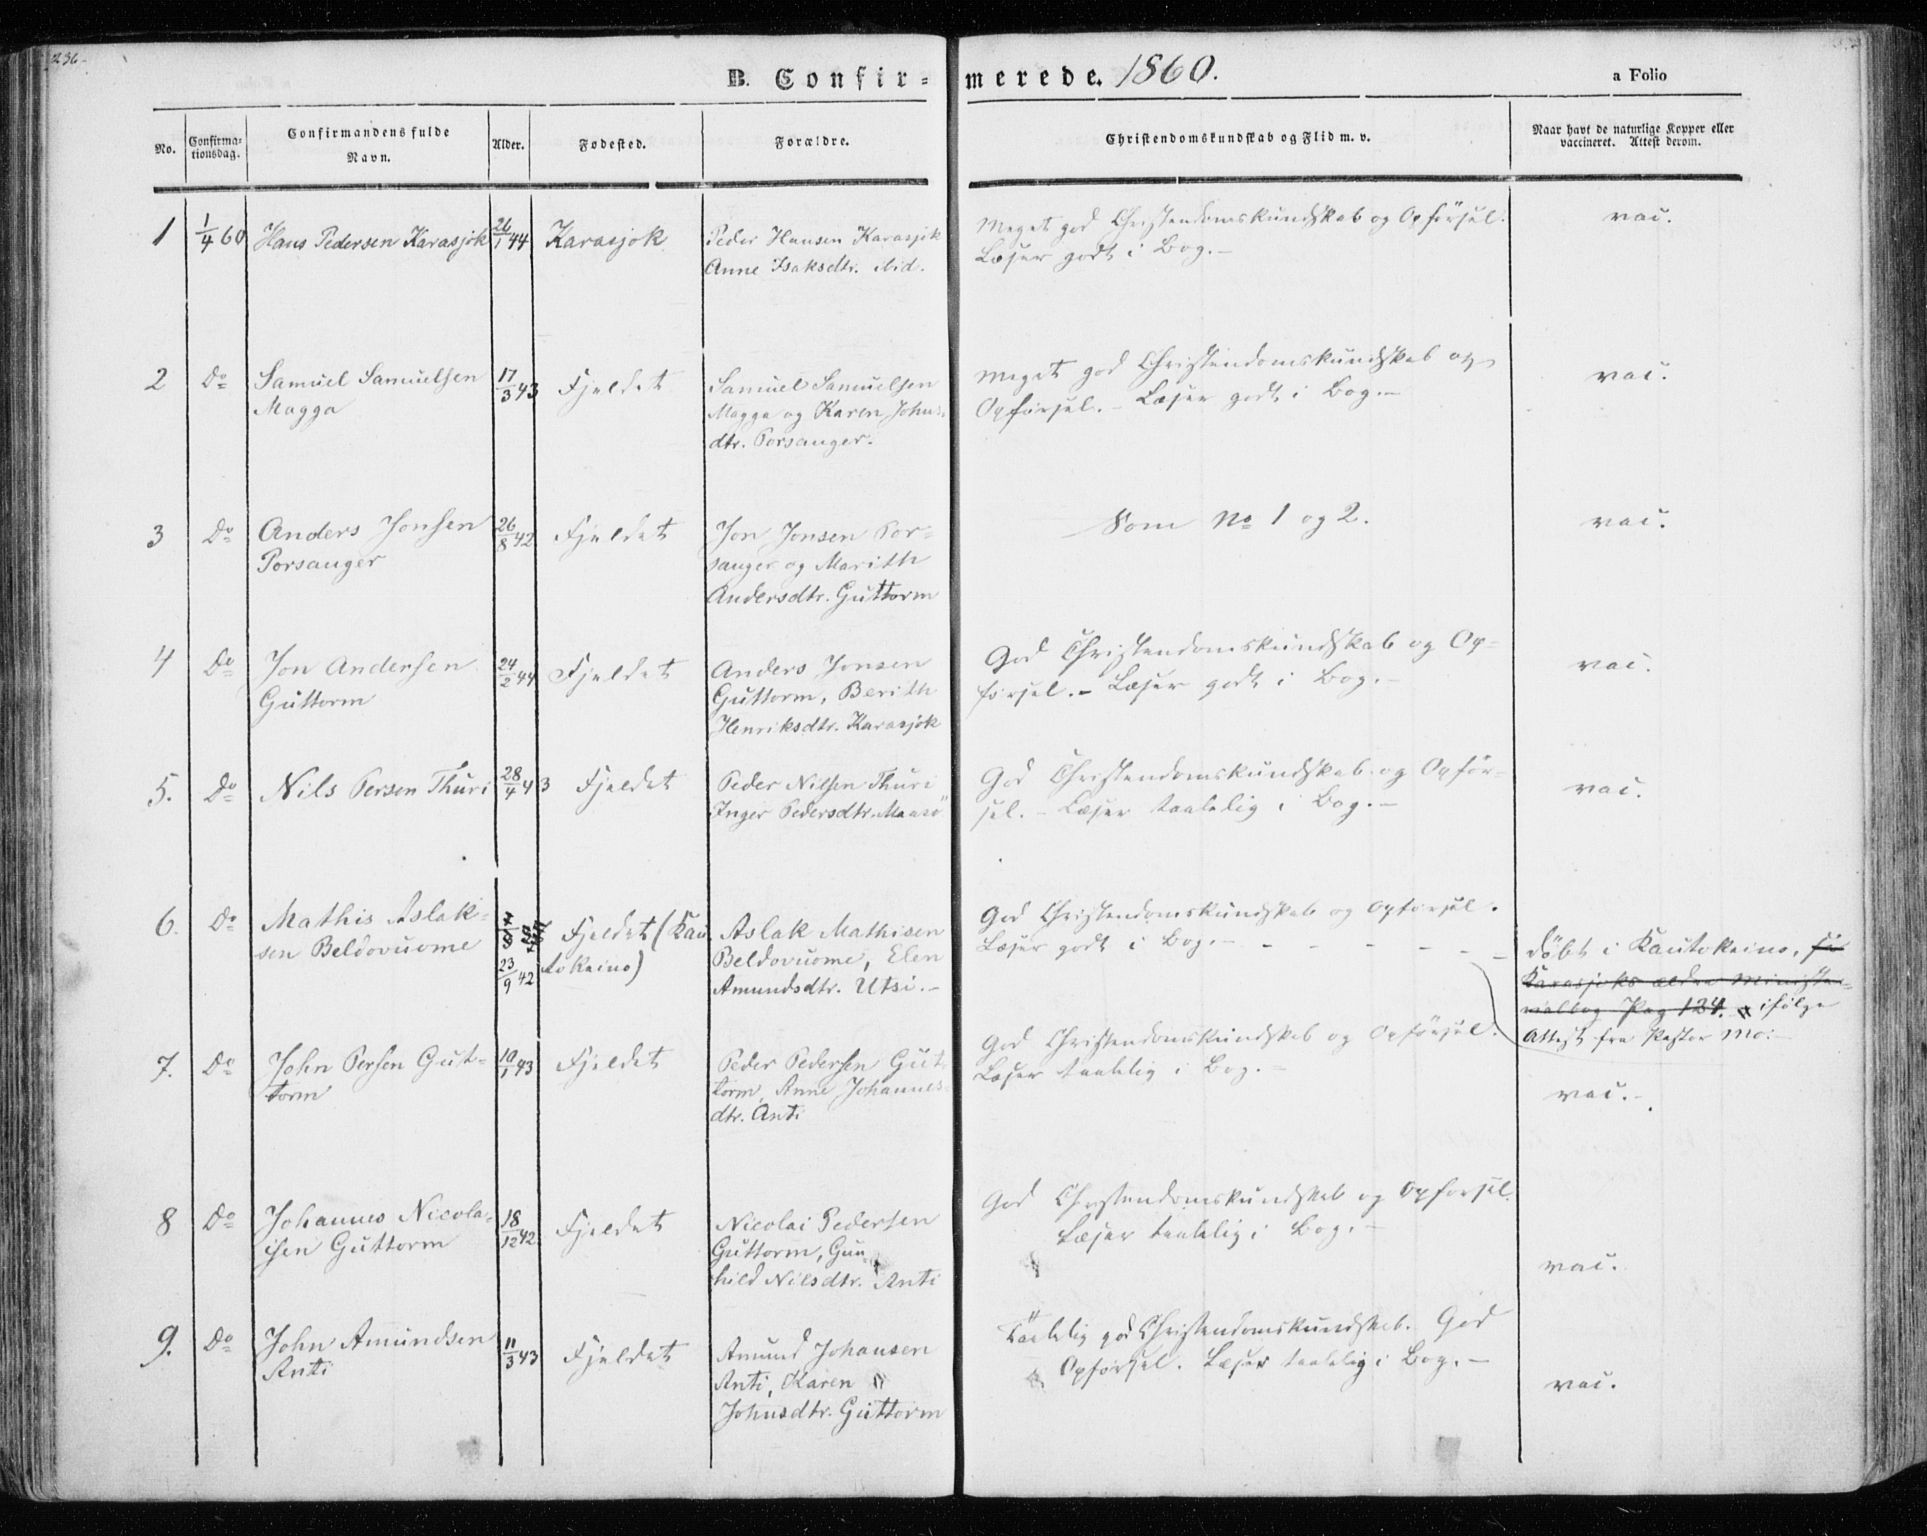 236.
B. Confir-merede. 1860.
a Folio
No.
Confirma-
tionsdag.
Confirmandens fulde
Navn.
Alder.
Fødested.
Forældre.
Christendomskundskab og Flid m. v.
Naar havt de naturlige Kopper eller
vaccineret. Attest derom.
1 1/4 60 Hans Pedersen Karasjok 26/1 44 Karasjok
Peder Hansen Karasjok
Anne Isaksdtr. ibid.
Meget god Christendomskundskab og Opførsel.
Læser godt i Bog.-
vac.
2 Do Samuel Samuelsen
Magga
17/3 43 Fjeldet
Samuel Samuelsen
Magga og Karen Johns-
dtr. Porsanger.
Meget god Christendomskundskab og
Opførsel.- Læser godt i Bog.-
vac.
3 Do Anders Jonsen
Porsanger
26/8 42 Fjeldet
Jon Jonsen Por-
sanger og Marith
Andersdtr. Guttorm
Som No 1 og 2.
vac.
4 Do Jon Andersen
Guttorm
24/2 44 Fjeldet
Anders Jonsen
Guttorm, Berith
Henriksdtr. Karasjok
God Christendomskundskab og Op-
førsel.- Læser godt i Bog.-
vac.
5. Do Nils Persen Thuri 28/4 43 Fjeldet
Peder Nilsen Thuri
Inger Pedersdtr. Maasø
God Christendomskundskab og Opfør-
sel.- Læser taalelig i Bog.-
vac.
6. Do Mathis Aslak-
sen Beldovuome
23/9 42
Fjeldet (Kau
tokeino)
Aslak Mathisen
Beldovuome, Elen
Amundsdtr. Utsi.-
God Christendomskundskab og Opførsel.
Læser godt i Bog.-
døbt i Kautokeino,
Karasjoks ældre Ministe-
rialbog Pag 124. ifølge
Attest fra Pastor Mo:-
7. Do John Persen Gut-
torm
10/1 43 Fjeldet
Peder Pedersen Gut-
torm, Anne Johannes-
dtr. Anti
God Christendomskundskab og Opførsel.
Læser taalelig i Bog.-
vac.-
8 Do Johannes Nicola-
isen Guttorm
18/12 42 Fjeldet
Nicolai Pedersen
Guttorm, Gun
hild Nilsdtr. Anti
God Christendomskundskab og Opførsel.
Læser taalelig i Bog.-
vac.
9. Do John Amundsen
Anti
11/3 43 Fjeldet
Amund Johansen
Anti, Karen
Johnsdtr. Guttorm
Taalelig god Christendomskundskab. God
Opførsel. Læser taalelig i Bog.-
vac.